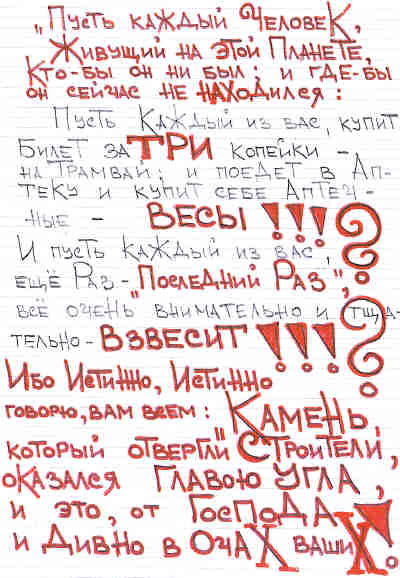 „Пусть каждый Человек,
Живущий на этой Планете,
Кто-бы он ни был; и где-бы
он сейчас не находился:
Пусть Каждый из вас, купит
Билет за ТРИ копейки -
на трамвай; и поедет в Ап-
теку и купит себе Аптеч-
ные - ВЕСЫ!!!?
И пусть каждый из вас,
ещё Раз - „Последний Раз",
всё очень внимательно и тща-
тельно - ВЗВЕСИТ!!!?
Ибо Истинно, Истинно
говорю, вам всем: Камень,
который отвергли Строители,
оказался главою угла,
и это, от Господа
и Дивно в Очах ваших!